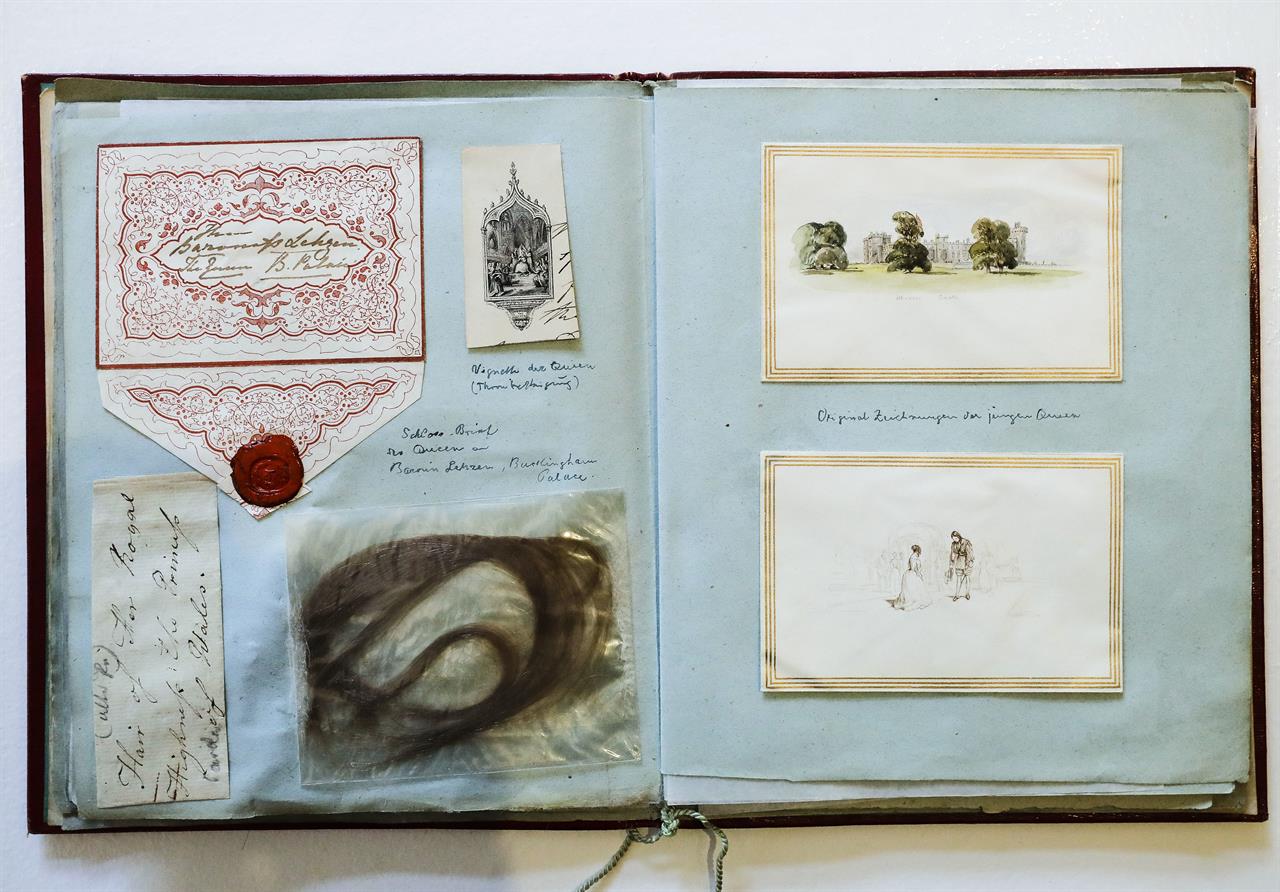 From
Baroness Lehzen
The Queen B. Palace
Vignette der Queen
(Thronbesteigung)
Schloss-Brief
der Queen an
Baronin Lehzen, Buckingham
Palace.
Hair of Her Royal
Highness The Princess
of Wales.
Original Zeichnungen der jungen Queen
Windsor Castle